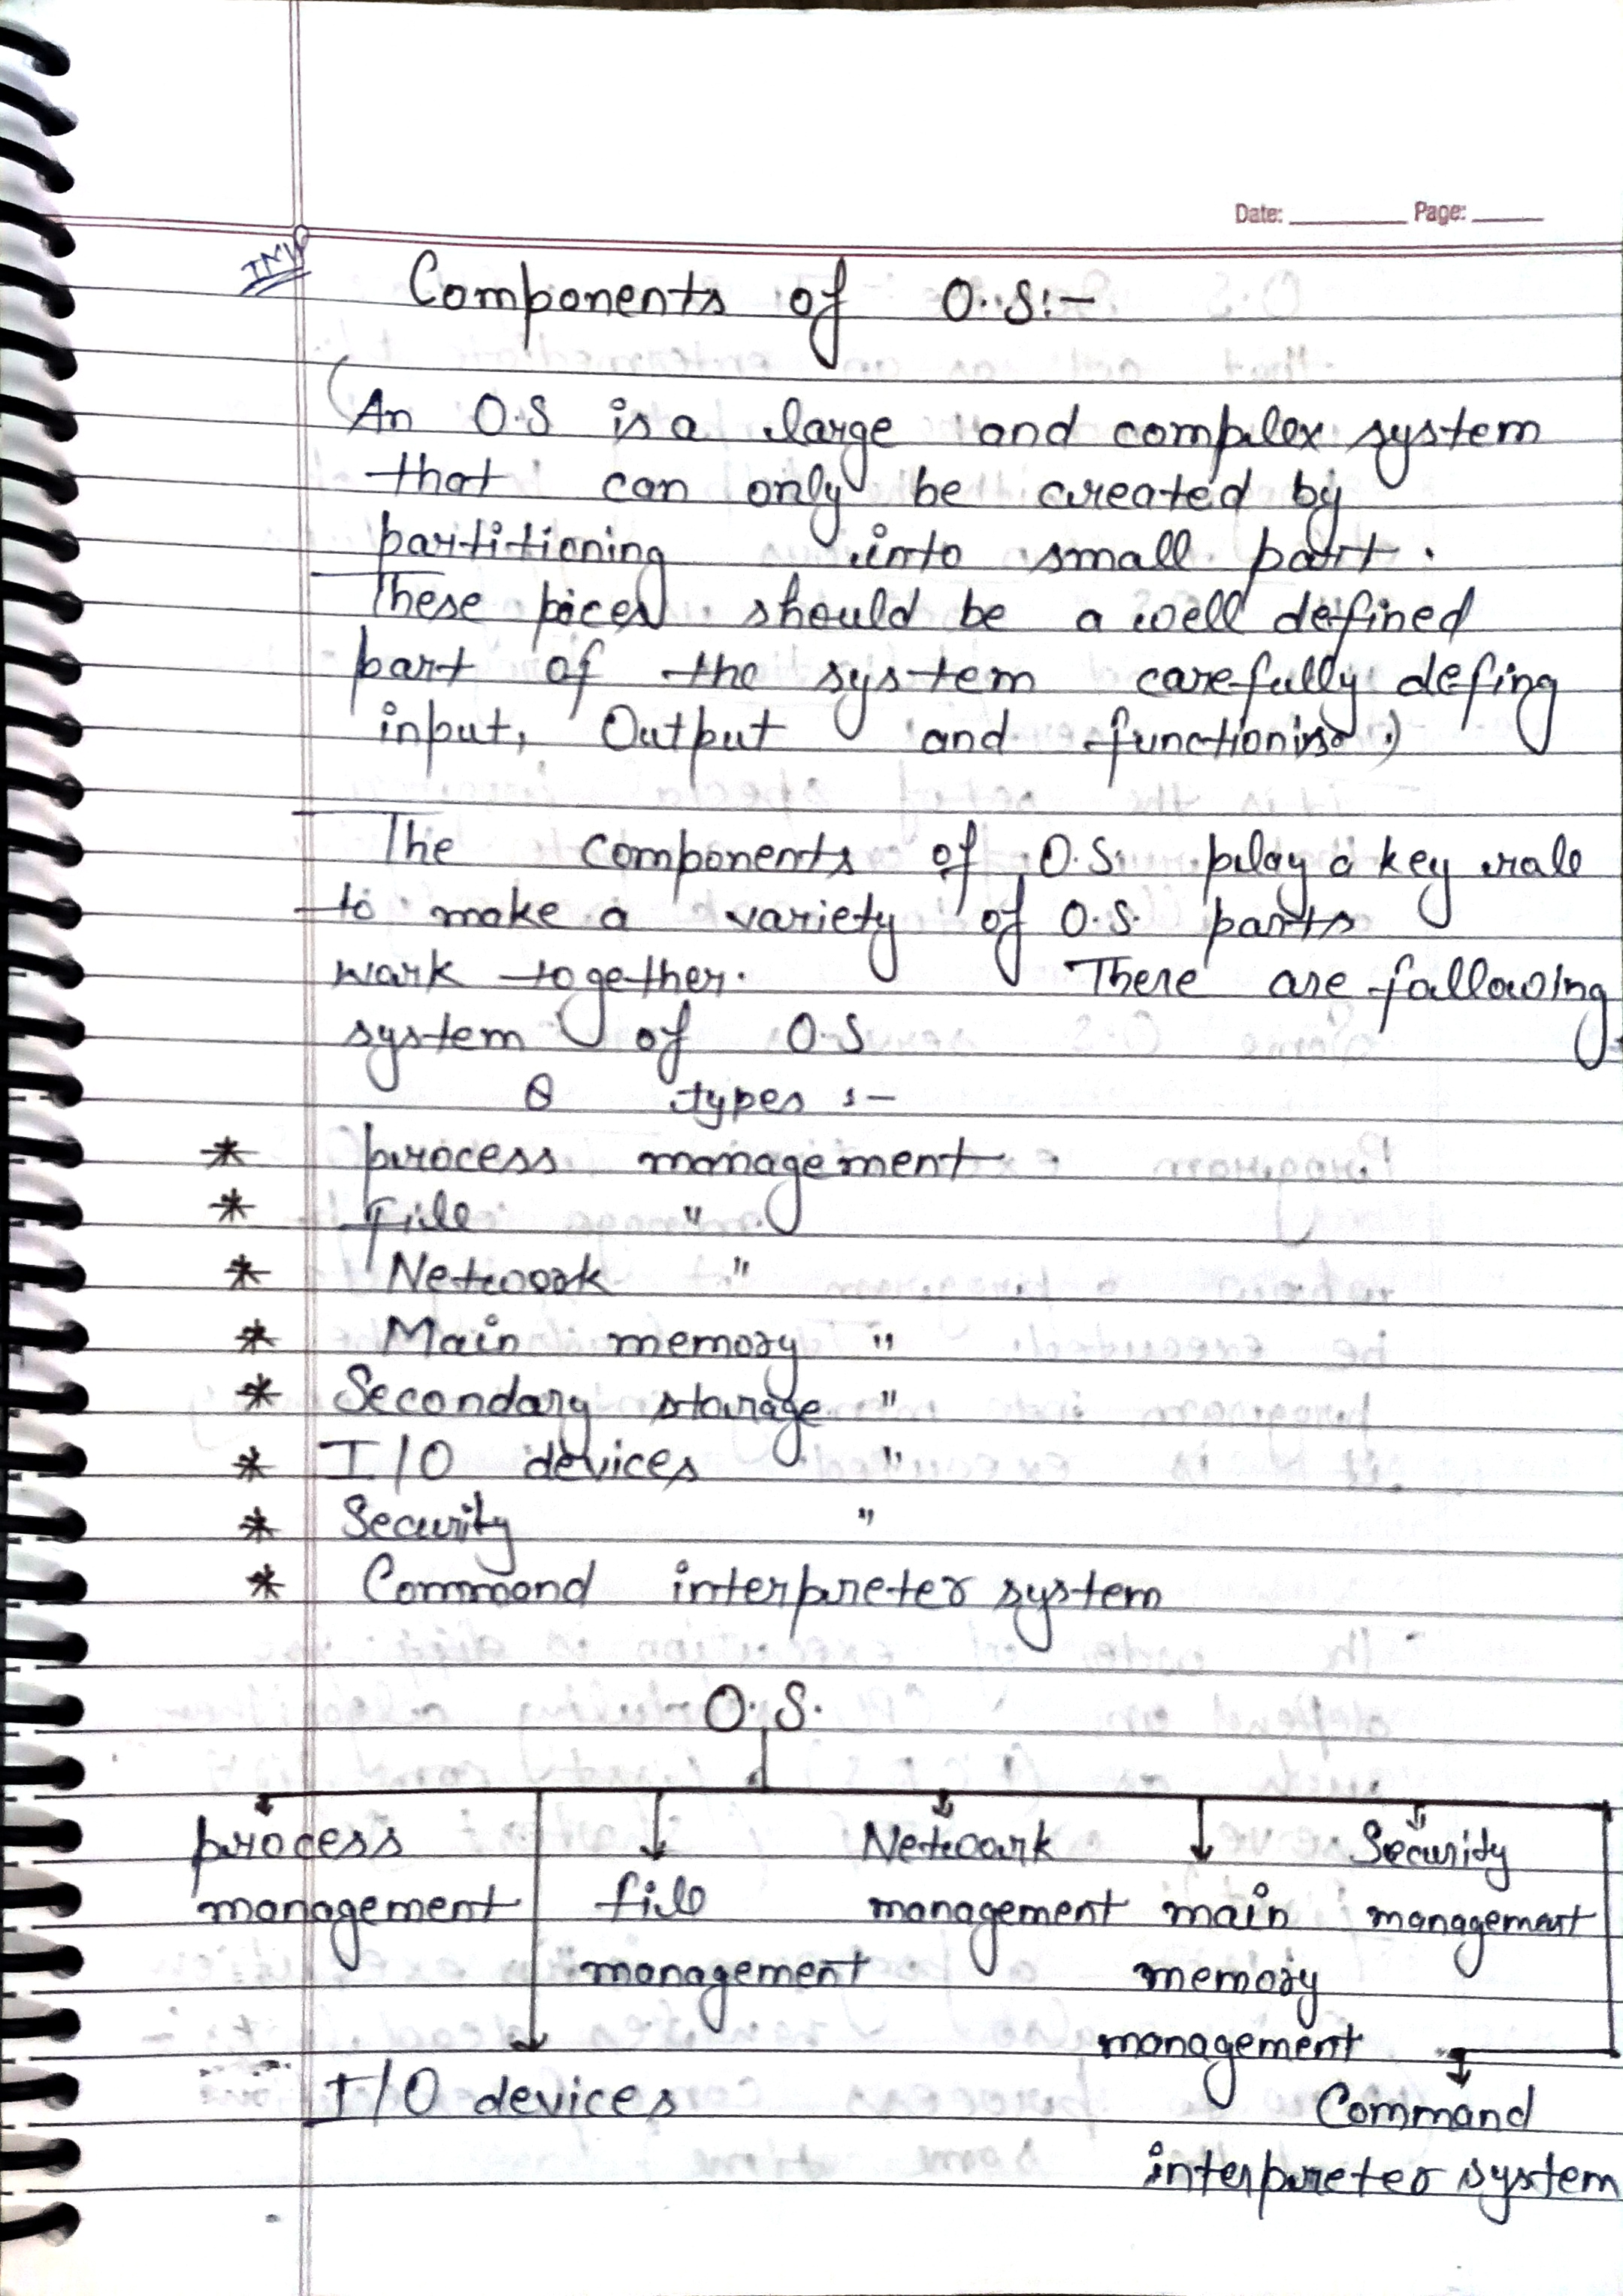 Date: Page:
IMP
Components of O.S:-
(An O.S is a large and complex system
that can only be created by
partitioning into small part.
These pices should be a well defined
part of the system carefully defing
input, Output and functioning.)
The components of O.S. play a key role
to make a variety of O.S. parts
work together. There are following
system of O.S
8 types :-
* process management
* File "
* Network "
* Main memory "
* Secondary storage "
* I/O devices "
* Security "
* Command interpreter system
O.S.
process Network Security
management file management main management
management memory
management
I/O devices Command
interpreter system